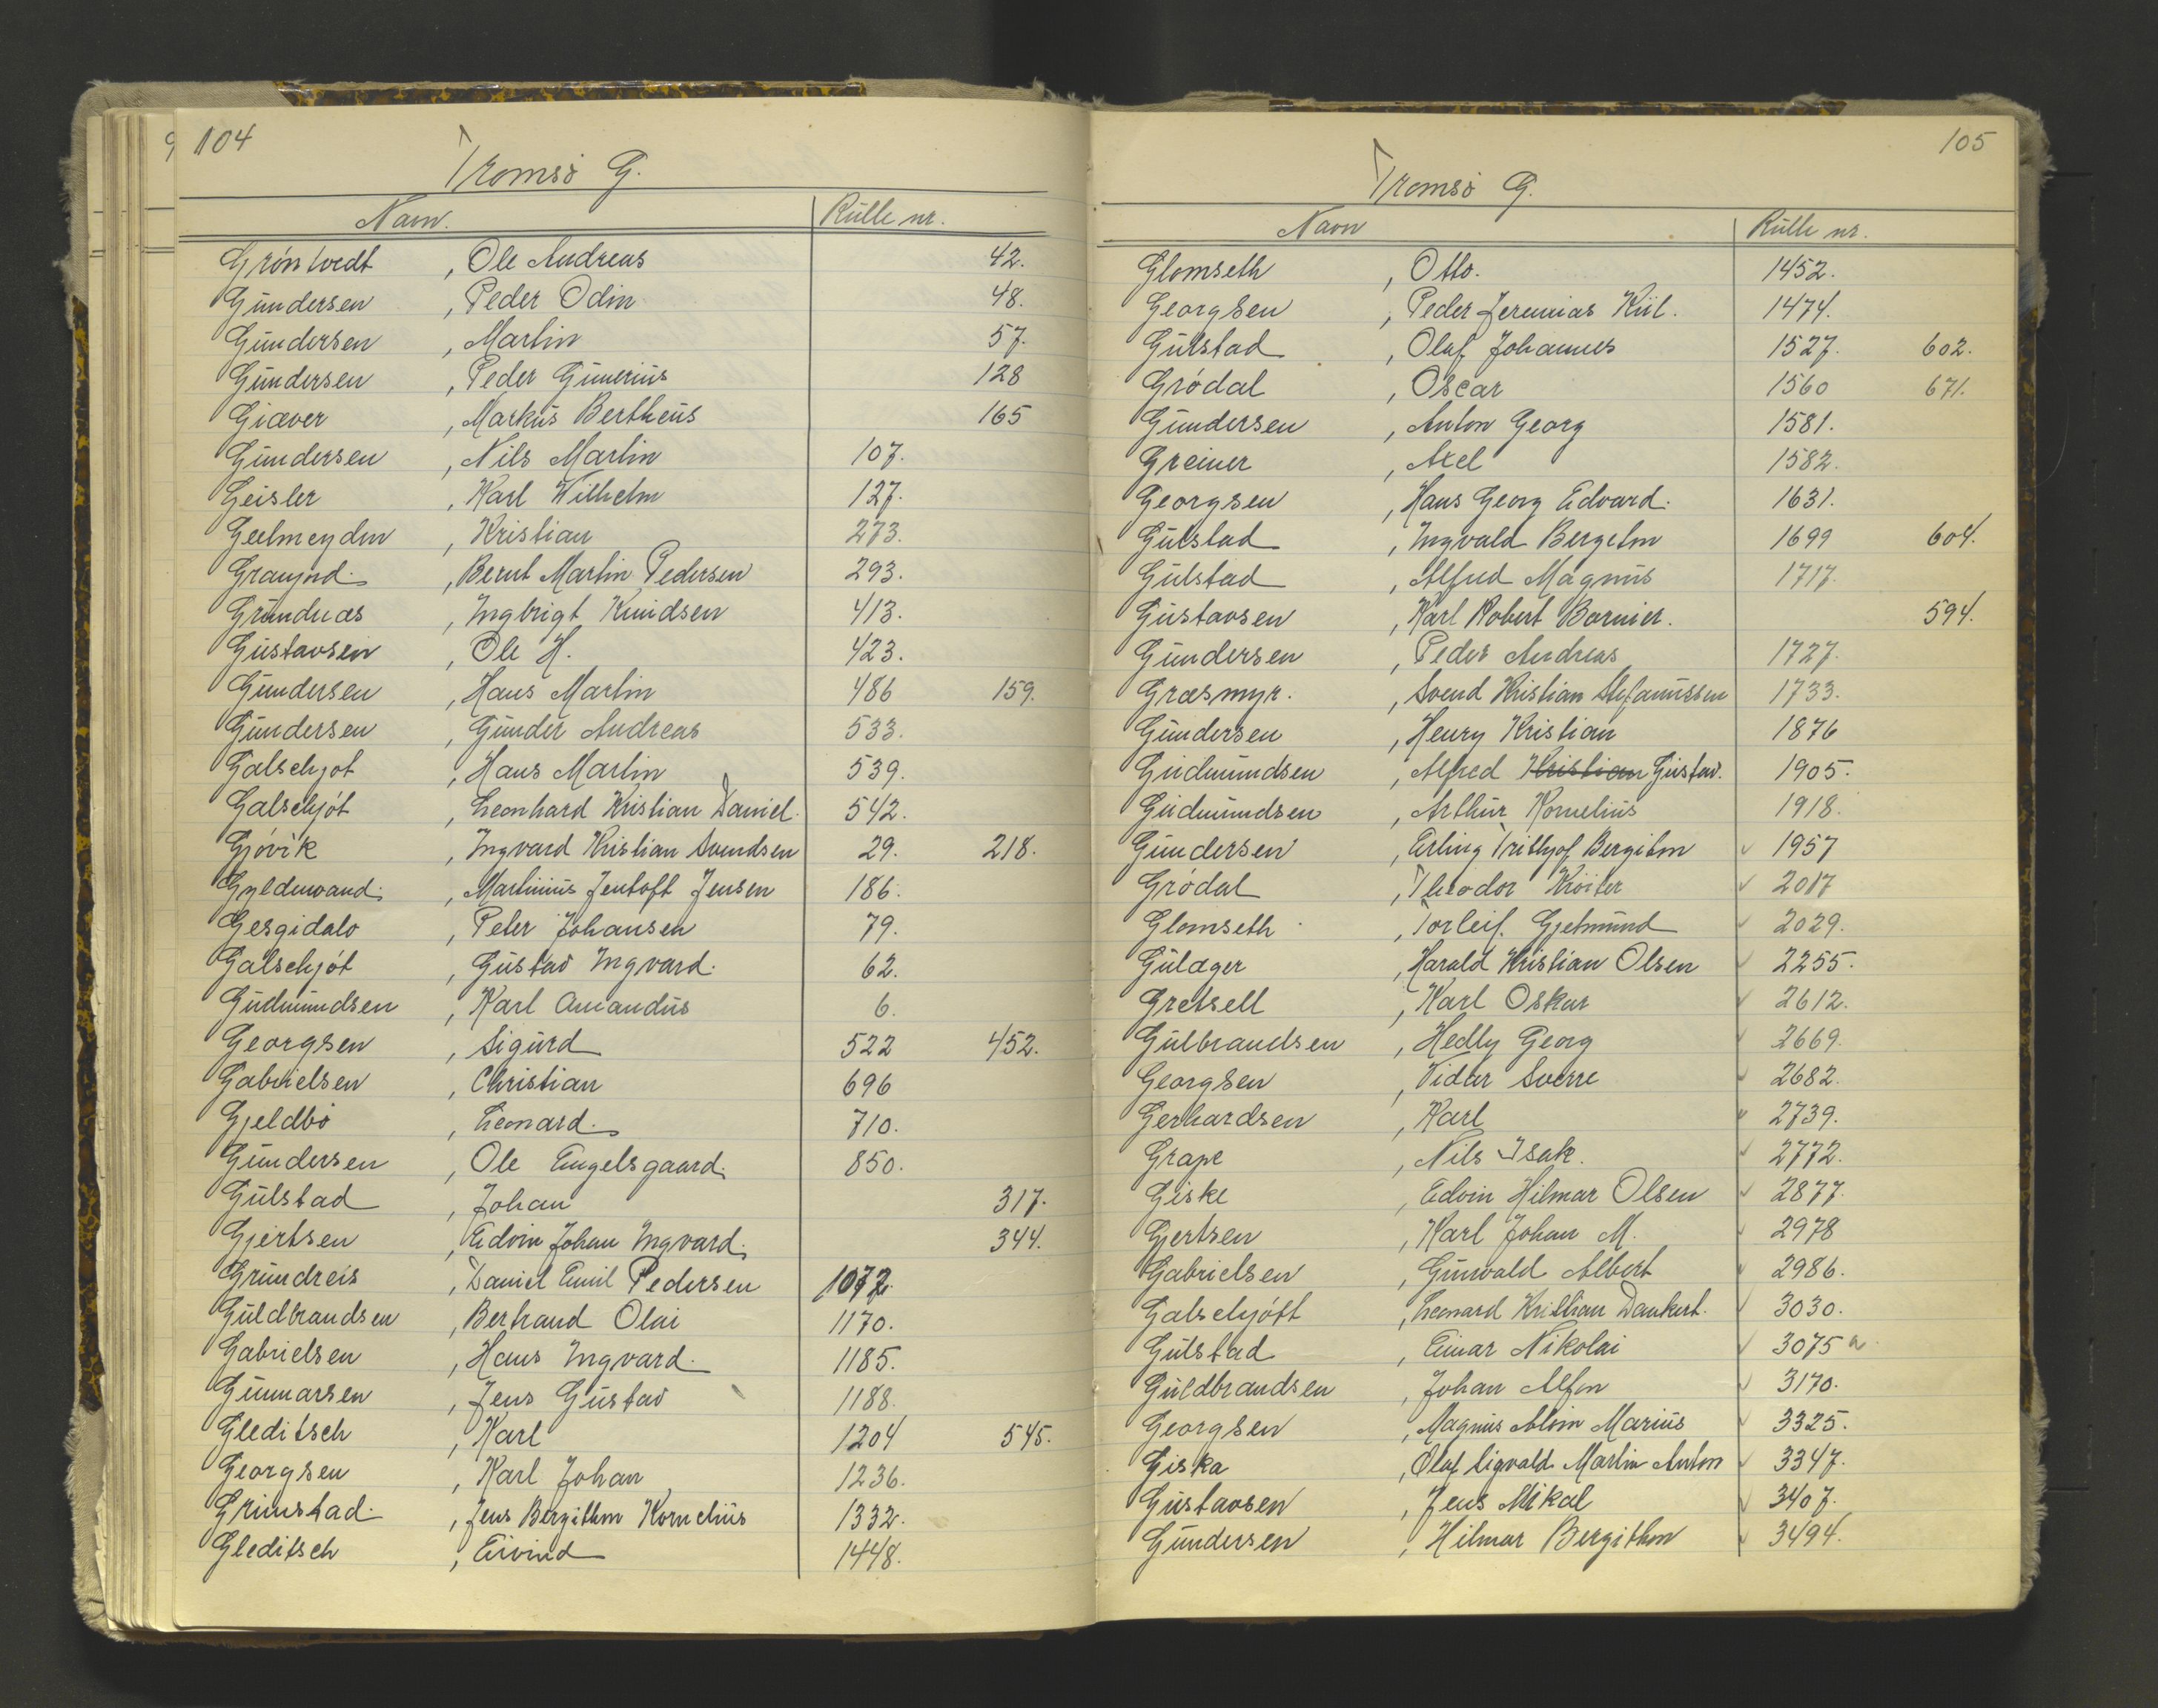 9
104
Tromsø G.
Navn. Rulle nr.
Gröntvedt, Ole Andreas 42.
Gundersen, Peder Odin 48.
Gundersen, Martin 57.
Gundersen, Peder Gunerius 128
Giæver, Markus Bertheus 165
Gundersen, Nils Martin 107.
Geisler, Karl Wilhelm 127.
Geelmeyden, Kristian 273.
Bernt Martin Pedersen 293.
Grundnæs, Ingbrigt Knudsen 413.
Gustavsen, Ole H. 423.
Gundersen, Hans Martin 486 159.
Gundersen, Gunder Andreas 533.
Galschjøt, Hans Martin 539.
Galschjøt, Leonhard Kristian Daniel 542.
Gjøvik, Ingvard Kristian Svendsen 29. 218.
Gyldenvand, Martinius Jentoft Jensen 186.
Gesgidalo, Peter Johansen 79.
Galschjøt, Gustav Ingvard. 62.
Gudmundsen, Karl Amandus 6.
Georgsen, Sigurd 522 452.
Gabrielsen, Christian 696
Gjeldbø, Leonard. 710.
Gundersen, Ole Engelsgaard. 850.
Gulstad, Johan 317.
Gjertsen, Edvin Johan Ingvard. 344.
Grundreis, Daniel Emil Pedersen 1072.
Guldbrandsen, Bertrand Olai 1170.
Gabrielsen, Hans Ingvard. 1185.
Gunnarsen, Jens Gustav 1188.
Gleditsch, Karl 1204 545.
Georgsen, Karl Johan 1236.
Grimstad, Jens Bergithon Kornelius 1332.
Gleditsch, Eivind 1448.
105
Tromsø G.
Navn Rulle nr.
Glomseth, Otto. 1452.
Georgsen, Peder Jeremias Kiil. 1474.
Gulstad, Olaf Johannes 1527. 602.
Grødal, Oscar 1560 671.
Gundersen, Anton Georg 1581.
Greiner, Axel 1582.
Georgsen, Hans Georg Edvard. 1631.
Gulstad, Ingvald Bergeton 1699 604.
Gulstad, Alfred Magnus 1717.
Gustavsen, Karl Robert Bornier. 594.
Gundersen, Peder Andreas 1727.
Græsmyr., Svend Kristian Stefanussen 1733.
Gundersen, Henry Kristian 1876
Gudmundsen, Alfred Kristian Gustav. 1905.
Gudmundsen, Arthur Kornelius 1918.
Gundersen, Erling Trithjof Bergiton 1957
Grødal, Theodor Kröiter 2017
Glomseth, Torleif Gjetmund 2029.
Gulager, Harald Kristian Olsen 2255.
Gretsell, Karl Oskar 2612.
Gulbrandsen, Hedly Georg 2669.
Georgsen, Vidar Sverre 2682.
Gerhardsen, Karl 2739.
Grape, Nils Isak. 2772.
Giske, Edvin Hilmar Olsen 2877.
Gjertsen, Karl Johan M. 2978
Gabrielsen, Gunvald Albert 2986.
Galschjøtt, Leonard Kristian Dankert. 3030.
Gulstad, Einar Nikolai 3075 a
Guldbrandsen, Johan Alfon 3170.
Georgsen, Magnus Alvin Marius 3325.
Giska, Olaf Sigvald Martin Anton 3347.
Gustavsen, Jens Mikal 3407.
Gundersen, Hilmar Bergithon 3494.